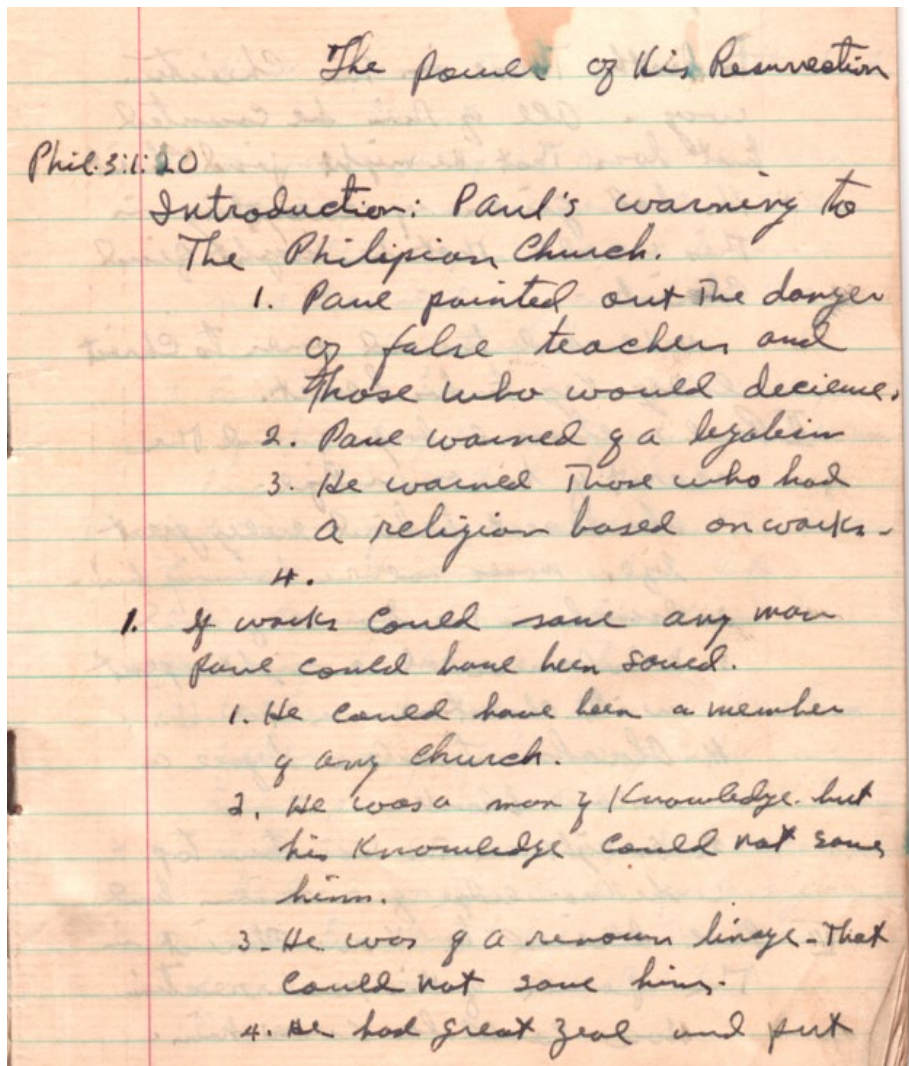 The Power of His Resurrection
Phil. 3:1:20
Introduction: Paul's warning to
The Philipian Church.
1. Paul pointed out The danger
of false teachers and
Those who would decieve.
2. Paul warned of a legalism
3. He warned Those who had
a religion based on works.
4.
1. If works Could save any man
Paul could have been saved.
1. He could have been a member
of any Church.
2. He was a man of Knowledge. but
his Knowledge could not save
him.
3. He was of a renown linage - That
Could not save him.
4. He had great zeal and put